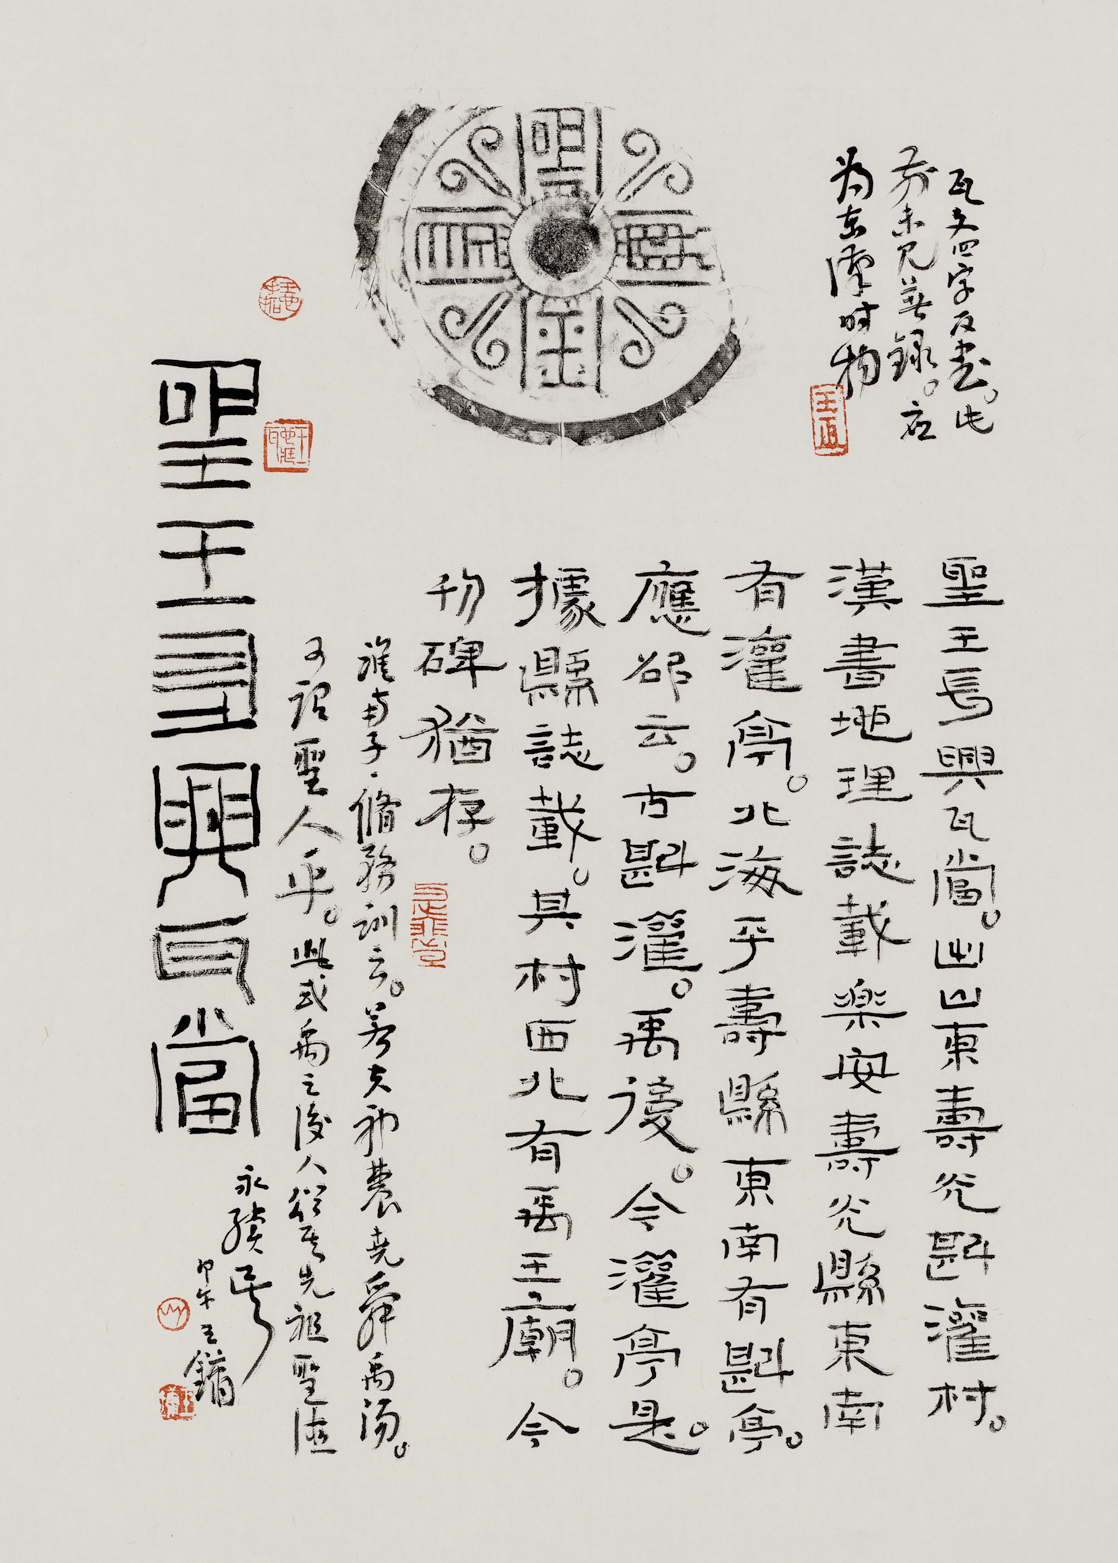 瓦文四字反書。此
前未見著録。应
为東漢时物
聖王長興瓦當。出山東壽光斟灌村。
漢書地理誌載樂安壽光縣東南
有灌亭。北海平壽縣東南有斟亭。
應邵云。古斟灌。禹後。今灌亭是。
據縣誌載。其村西北有禹王廟。今
碑猶存。
淮南子·脩務訓云。若夫神農堯舜禹湯。
可謂聖人乎。此或禹之後人其先祖聖德
聖王長興瓦當
永續乎
甲午王鏞